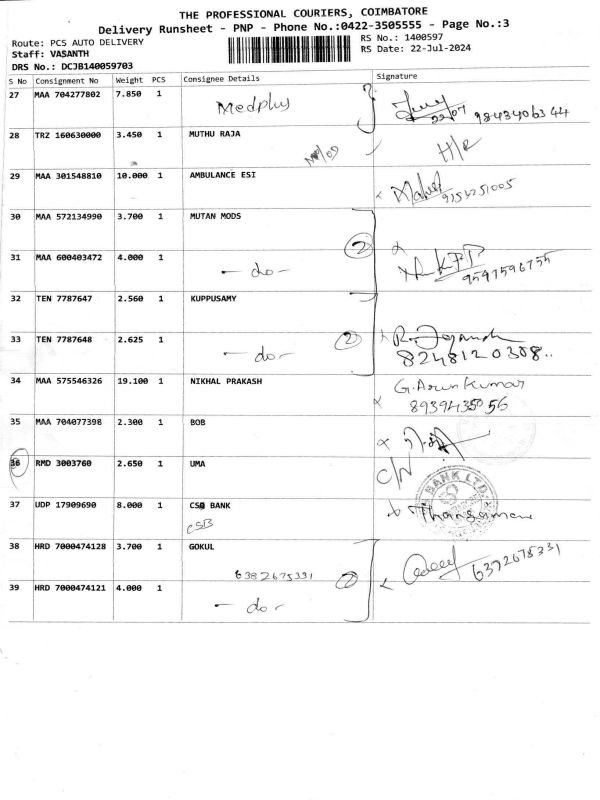 THE PROFESSIONAL COURIERS, COIMBATORE
Delivery Runsheet - PNP - Phone No.:0422-3505555 - Page No.:3
Route: PCS AUTO DELIVERY
RS No.: 1400597
Staff: VASANTH
RS Date: 22-Jul-2024
DRS No.: DCJB140059703
S No Consignment No Weight PCS Consignee Details Signature
27 MAA 704277802 7.850 1 Medplus
22/07 9843406344
28 TRZ 160630000 3.450 1 MUTHU RAJA H/R
29 MAA 301548810 10.000 1 AMBULANCE ESI
30 MAA 572134990 3.700 1 MUTAN MODS
2
31 MAA 600403472 4.000 1 - do -
9597596755
32 TEN 7787647 2.560 1 KUPPUSAMY
33 TEN 7787648 2.625 1 - do - 2
8248120308..
34 MAA 575546326 19.100 1 NIKHAL PRAKASH G. Arun Kumar
35 MAA 704077398 2.300 1 BOB
36 RMD 3003760 2.650 1 UMA C/N
BANK LTD.
37 UDP 17909690 8.000 1 CSB BANK
CSB
38 HRD 7000474128 3.700 1 GOKUL
6382675331 2 6372675331
39 HRD 7000474121 4.000 1 - do -